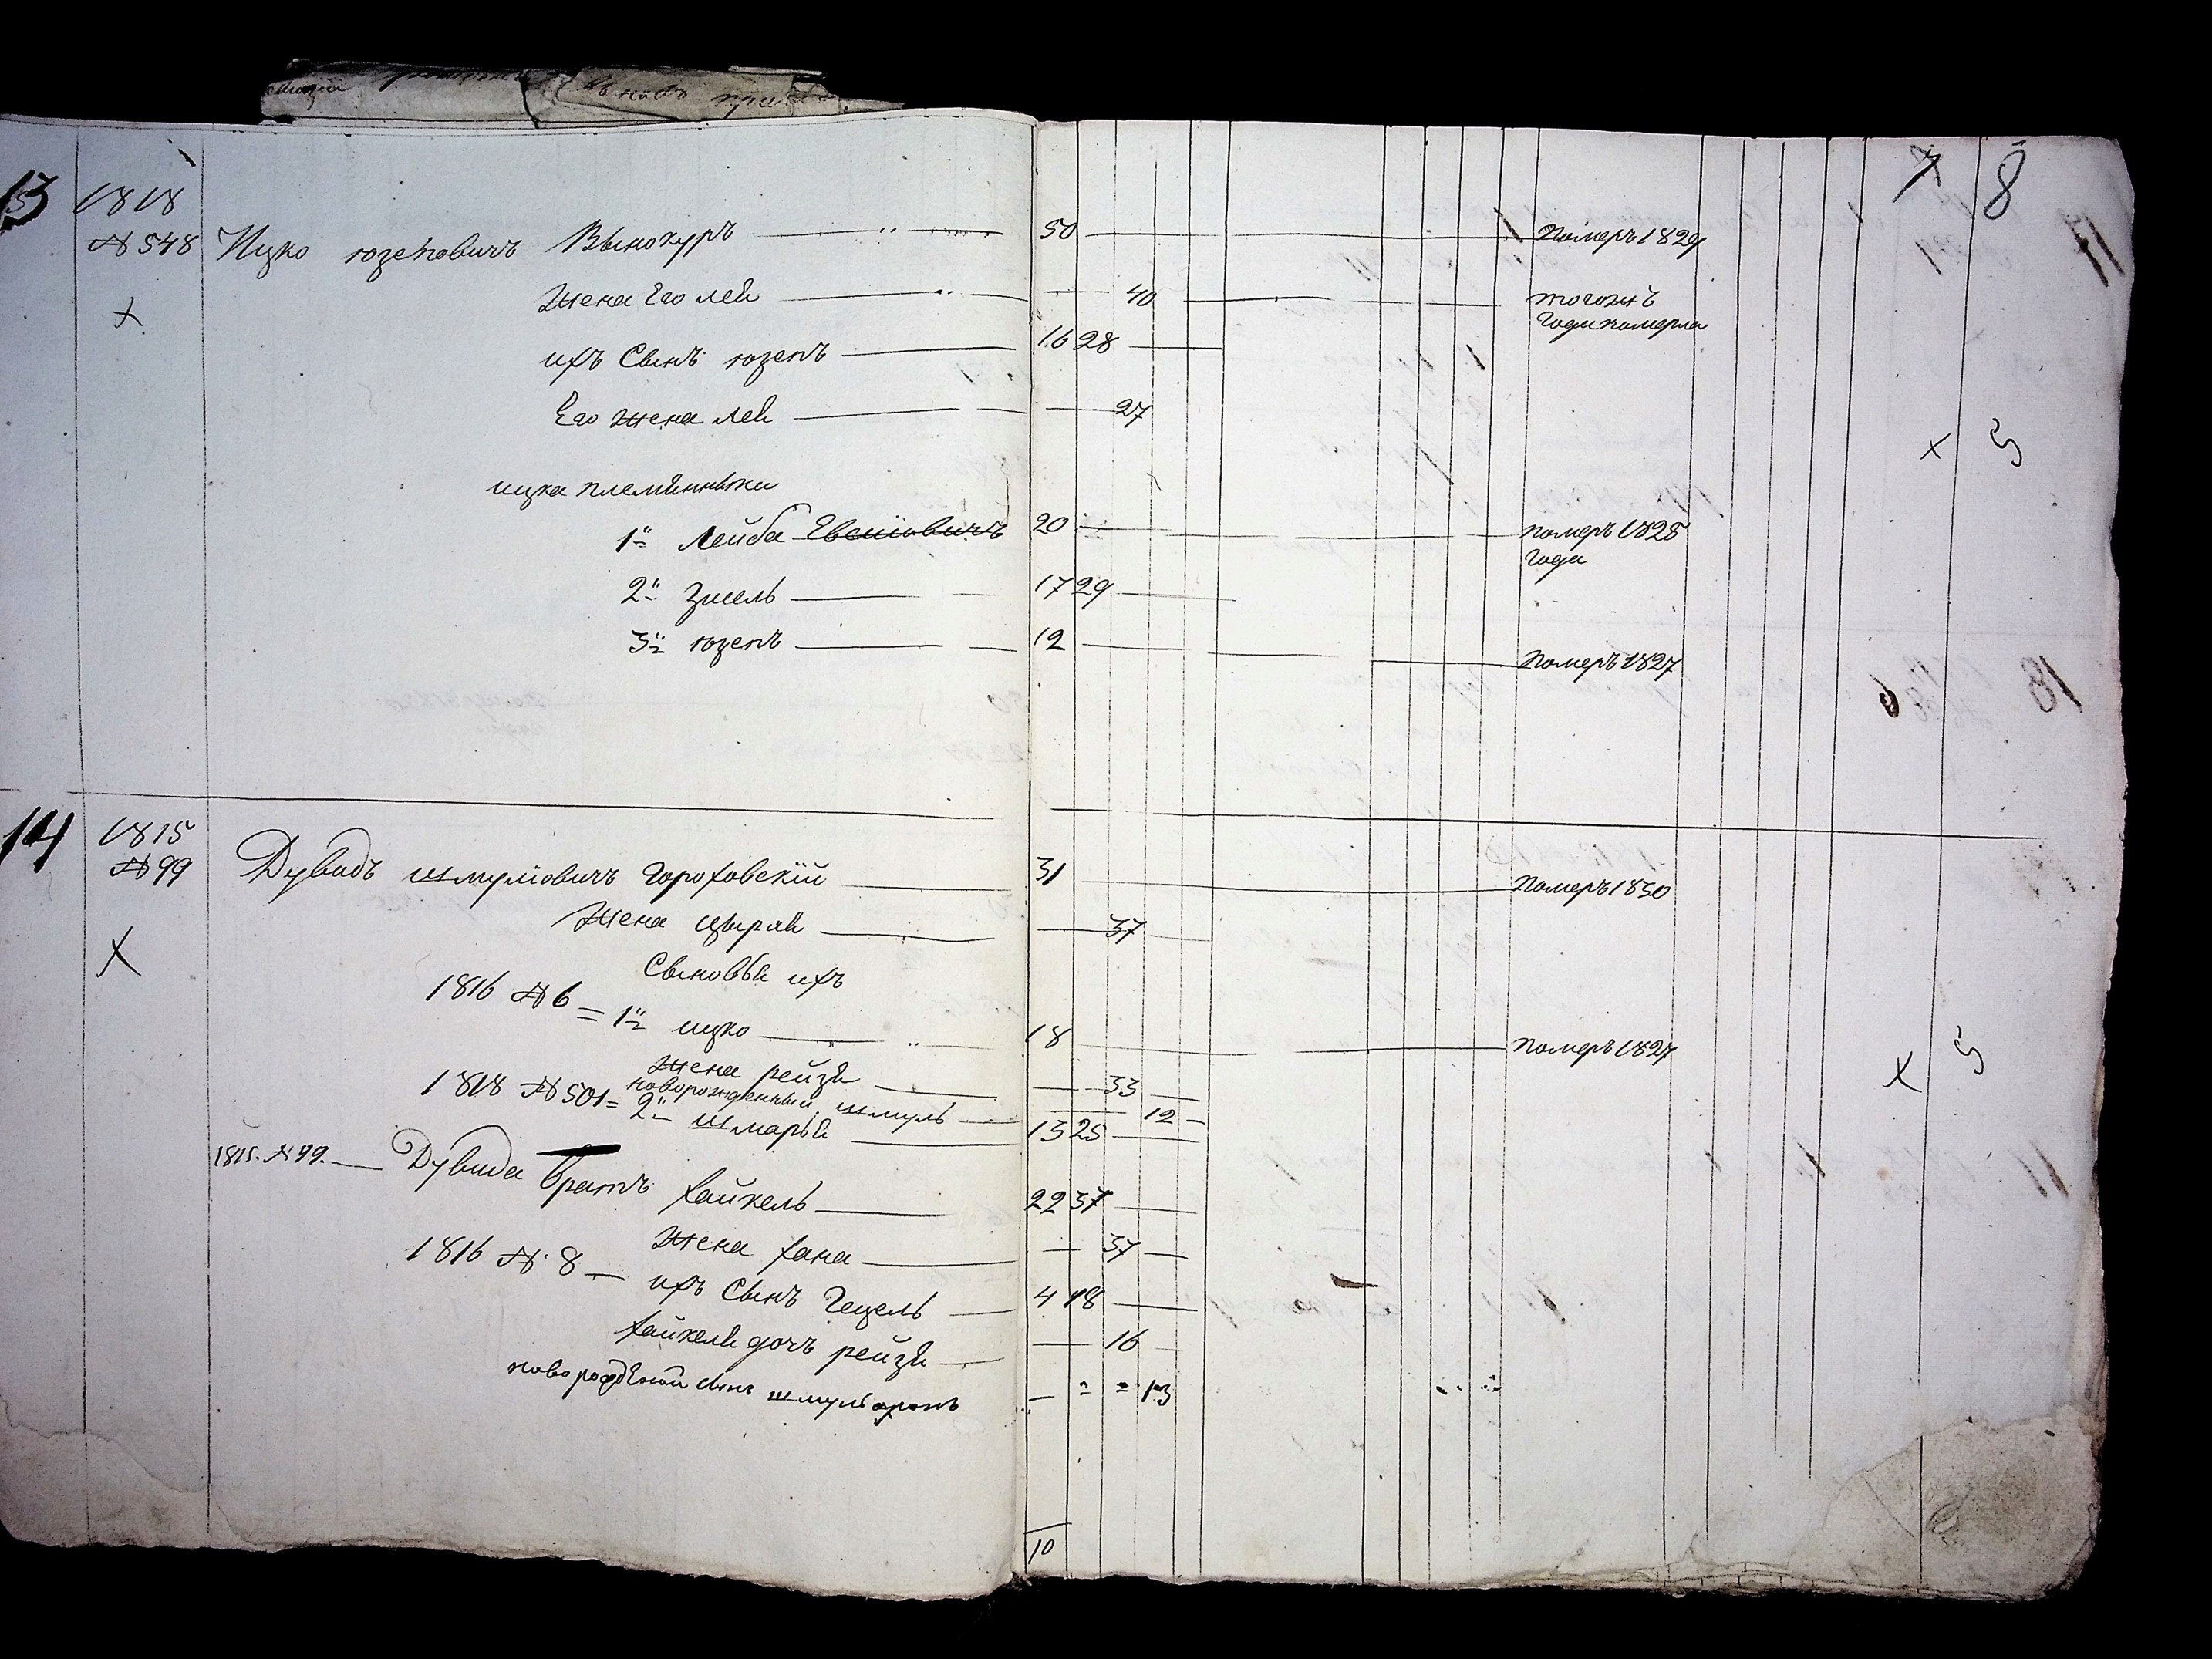 вновь
7 8
13 1818
№ 548 Ицко юзеповичъ Вынокуръ 50 Померъ 1829
Жена Его лея 40 тогожъ
Года померла
ихъ Сынъ юзепъ 16 28
Его жена лея 27
ицка племянныки
1й Лейба 20 померъ 1828
Года
2й Зисель 17 29
3й юзепъ 12 Померъ 1827
14 1815
№ 99 Дувидъ шмулiовичъ Гороховскiй 31 Померъ 1830
Жена цырля 37
Сыновья ихъ
1816 № 6 = 1й ицко 18 Померъ 1827
Жена рейзя 33
новорожденный шмуль 12
1818 № 501 = 2й шмарья 13 25
1815. № 99. Дувида братъ хайкель 22 37
Жена хана 37
1816 № 8 ихъ Сынъ Гецель 4 18
хайкеля дочъ рейзя 16
сынъ шмуль 13
10